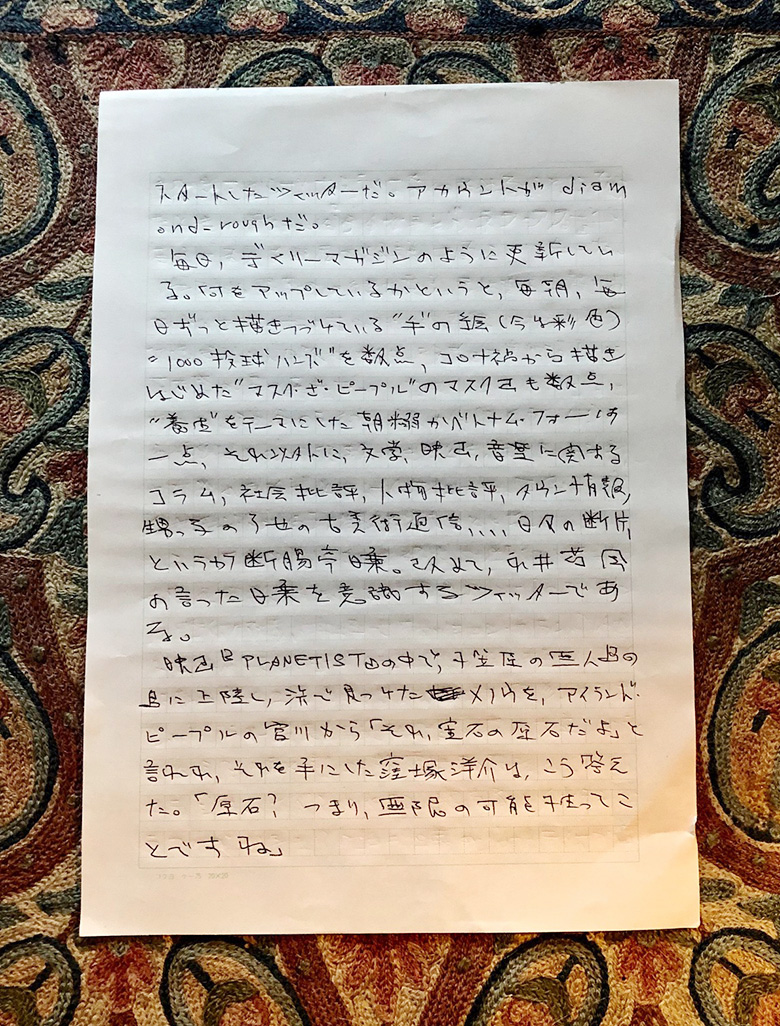 スタートしたツイッターだ。アカウントが diam
ond-roughだ。
毎日、デイリーマガジンのように更新してい
る。何をアップしているかというと、毎朝、毎
日ずっと描きつづけている“手”の絵(今は彩色)
“1000投球ハンズ”を数点、コロナ禍から描き
はじめた“マスク・ザ・ピープル”のマスク画も数点、
“養生”をテーマにした朝粥かベトナム・フォーは
一点、それ以外に、文学、映画、音楽に関する
コラム、社会批評、人物批評、タウン情報、
甥っ子の の古美術通信、、、、日々の断片、
というか断腸亭日乗。さながら、永井荷風
の言った日乗を意識するツイッターであ
る。
映画『PLANETIST』の中で、小笠原の無人島の
島に上陸し、浜で見つけたメノウを、アイランド・
ピープルの宮川から「それ、宝石の原石だよ」と
言われ、それを手にした窪塚洋介は、こう答え
た。「原石? つまり、無限の可能性ってこ
とですね」